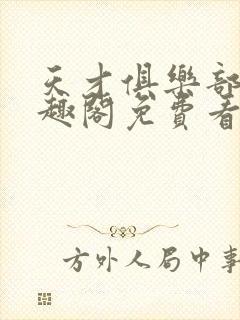 天才俱樂部
趣閣免費看
方外人局中事